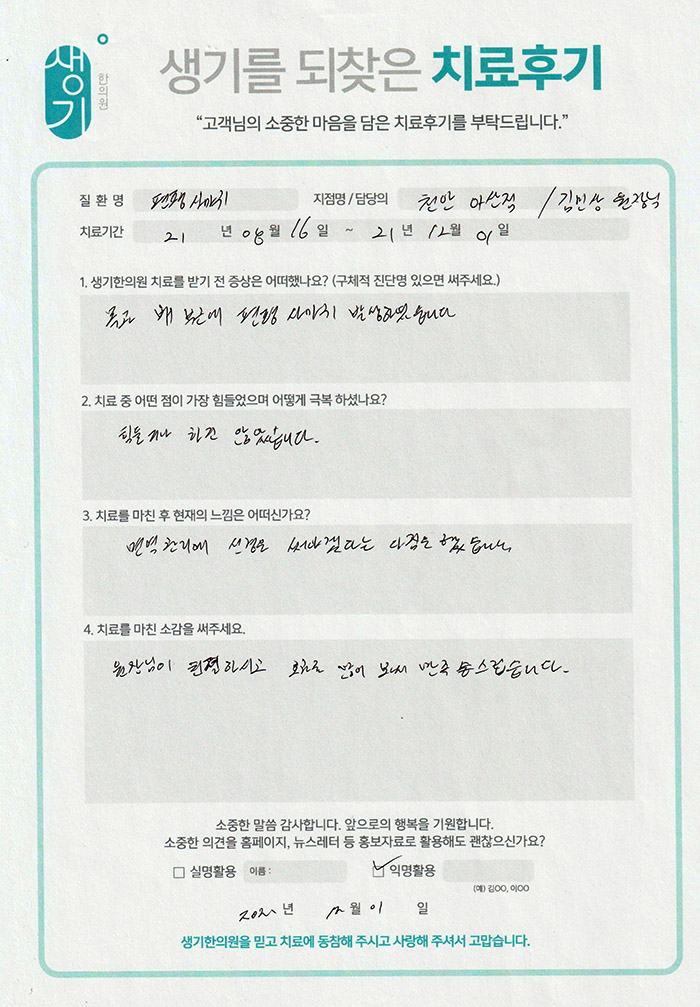 생기
한의원
생기를 되찾은 치료후기
“고객님의 소중한 마음을 담은 치료후기를 부탁드립니다.”
질 환 명 편평사마귀 지점명 / 담당의 천안 아산점 / 김민상 원장님
치료기간 21 년 08 월 16 일 ~ 21 년 12 월 01 일
1. 생기한의원 치료를 받기 전 증상은 어떠했나요? (구체적 진단명 있으면 써주세요.)
배 부근에 편평 사마귀 발생하였습니다
2. 치료 중 어떤 점이 가장 힘들었으며 어떻게 극복 하셨나요?
힘들거나 하진 않았습니다.
3. 치료를 마친 후 현재의 느낌은 어떠신가요?
면역관리에 신경을 써야겠다는 다짐을 했습니다
4. 치료를 마친 소감을 써주세요.
원장님이 친절하시고 효과를 많이 보아서 만족스럽습니다.
소중한 말씀 감사합니다. 앞으로의 행복을 기원합니다.
소중한 의견을 홈페이지, 뉴스레터 등 홍보자료로 활용해도 괜찮으신가요?
실명활용 이름 : 익명활용
(예) 김OO, 이OO
년 12 월 01 일
생기한의원을 믿고 치료에 동참해 주시고 사랑해 주셔서 고맙습니다.